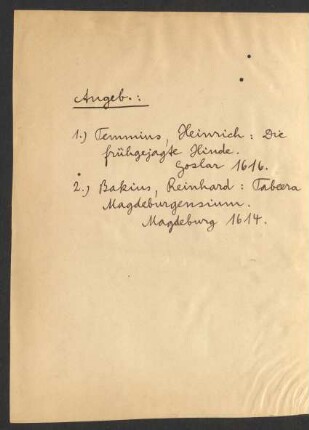 Angeb.:
1.) Temmius, Heinrich: Die
frühgejagte Hinde.
Goslar 1616.
2.) Bakius, Reinhard: Tabeera
Magdeburgensium.
Magdeburg 1614.